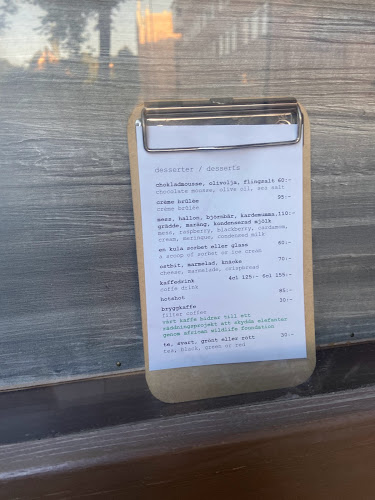 desserter / desserts
chokladmousse, olivolja, flingsalt 60:-
chocolate mousse, olive oil, sea salt
crème brûlée 95:-
crème brûlée
mess, hallon, björnbär, kardemumma, 110:-
grädde, maräng, kondenserad mjölk
mess, raspberry, blackberry, cardamom,
cream, meringue, condensed milk
en kula sorbet eller glass 60:-
a scoop of sorbet or ice cream
ostbit, marmelad, knäcke 70:-
cheese, marmalade, crispbread
kaffedrink 4cl 125:- 6cl 155:-
coffe drink
hotshot 85:-
bryggkaffe 30:-
filter coffee
vårt kaffe bidrar till ett
räddningsprojekt att skydda elefanter
genom african wildlife foundation
te, svart, grönt eller rött 30:-
tea, black, green or red